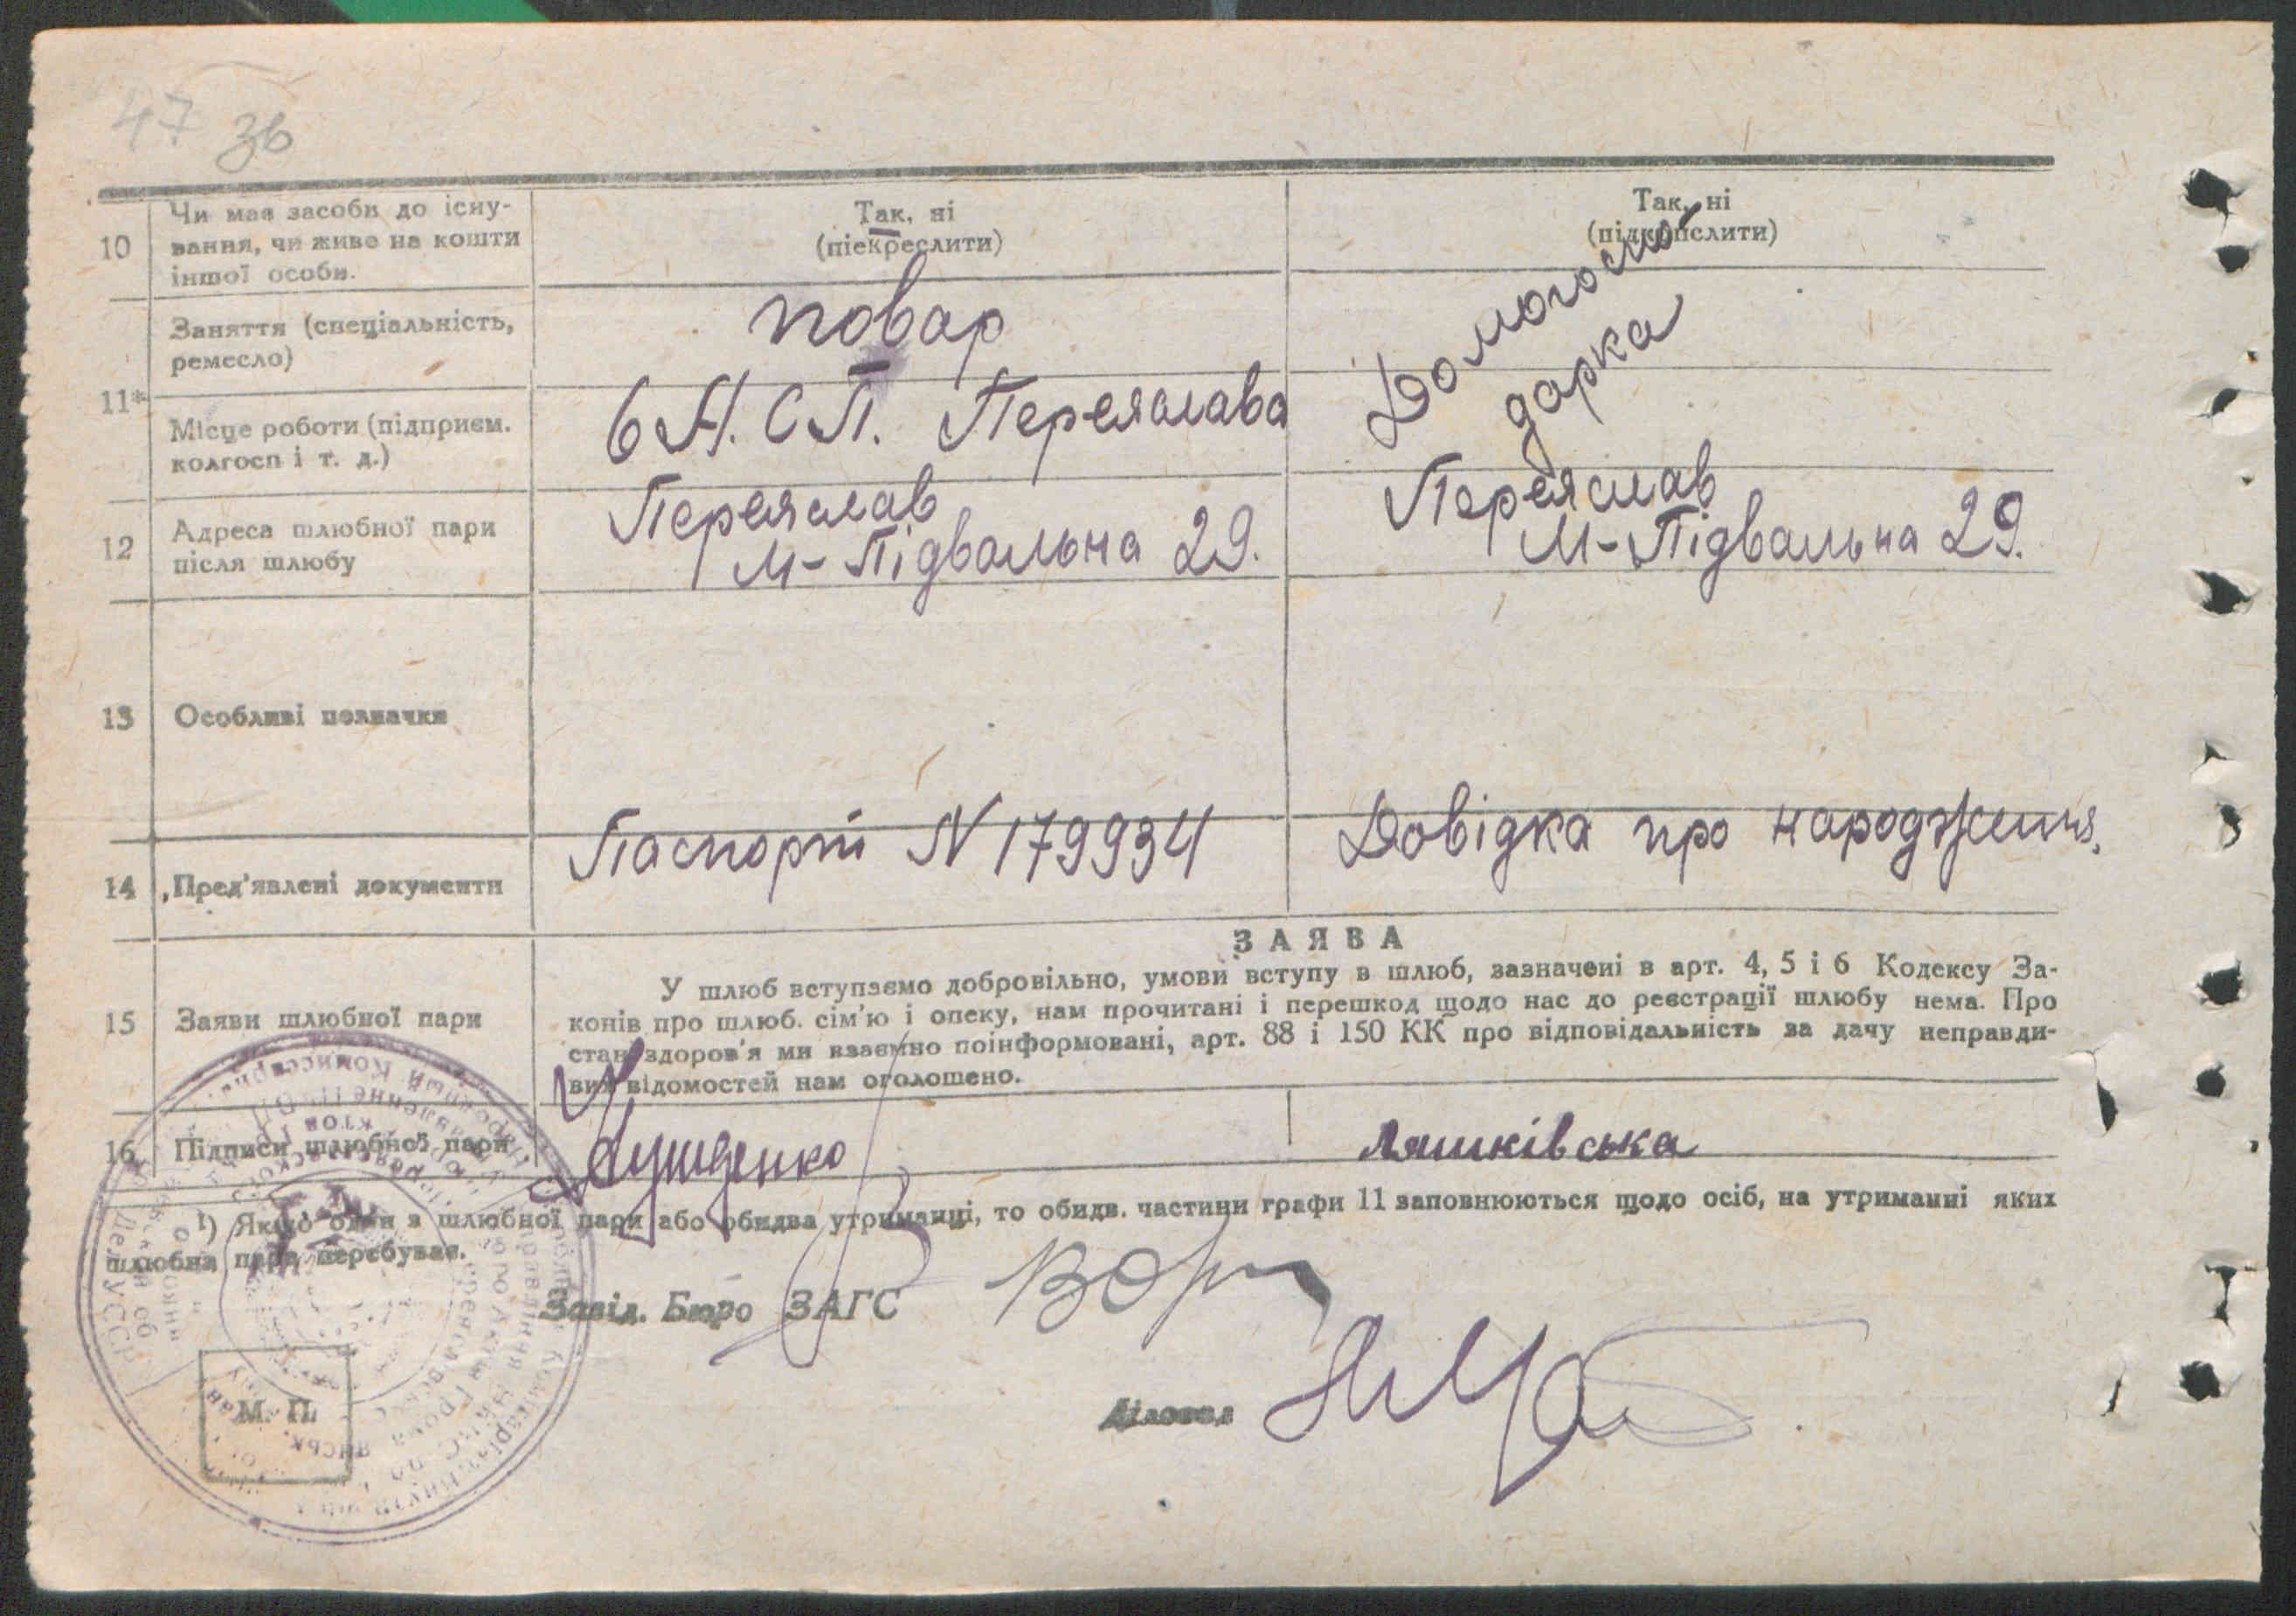 47 зв
10
Чи має засоби до існу-
вання, чи живе на кошти
іншої особи.
Так, ні
(піекреслити)
Так, ні
(підкреслити)
11*
Заняття (спеціальність,
ремесло)
повар
Домогоспо
дарка
Місце роботи (підприєм.
колгосп і т. д.)
в Н. С П. Переяслава
12
Адреса шлюбної пари
після шлюбу
Переяслав
М-Підвальна 29.
Переяслав
М-Підвальна 29.
13
Особливі позначки
14
Пред'явлені документи
Паспорт N 179934
Довідка про народження.
15
Заяви шлюбної пари
ЗАЯВА
У шлюб вступаємо добровільно, умови вступу в шлюб, зазначені в арт. 4, 5 і 6 Кодексу За-
конів про шлюб. сім'ю і опеку, нам прочитані і перешкод щодо нас до реєстрації шлюбу нема. Про
стан здоров'я ми взаємно поінформовані, арт. 88 і 150 КК про відповідальність за дачу неправди-
вих відомостей нам оголошено.
16
Підписи шлюбної пари
Ляшківська
¹) Якщо один з шлюбної пари або обидва утриманці, то обидв. частини графи 11 заповнюються щодо осіб, на утриманні яких
шлюбна пара перебуває.
Завід. Бюро ЗАГС
Діловод
М. П.